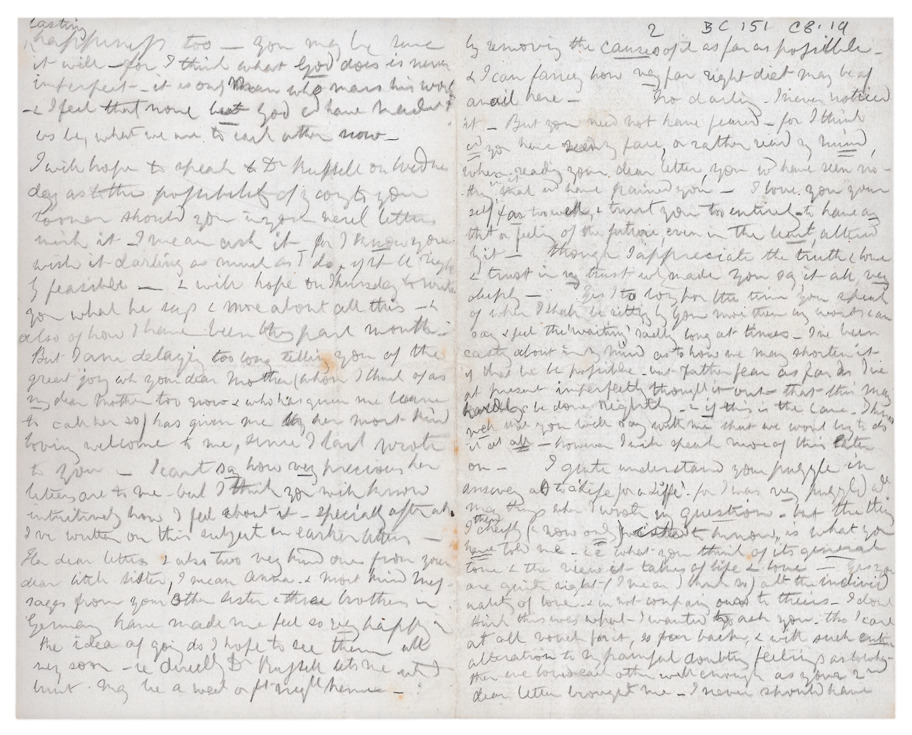 lasting
happiness too — you may be sure
it will — for I think what God does is never
imperfect — it is only Man who mars his work
— & I feel that none but God cd have made
us be, what we are to each other now —
I will hope to speak to Dr Russell on Wedne
day as to the possibility of my coming to you
sooner should you in your next letter
wish it I mean ask it — for I know you
wish it darling as much as I do, if it be
feasible — & will hope on Thursday to write
you what he says & more about all this — &
also of how I have been this past month —
But I am delaying too long telling you of the
great joy wh your dear Mother (whom I think of as
my dear Mother too now & who has given me leave
to call her so) has given me by her most kind
loving welcome to me, since I last wrote
to you — I can't say how very precious her
letters are to me — but I think you will know
intuitively how I feel about it — especially after all
I've written on this subject in earlier letters —
Her dear letters & also two very kind ones from your
dear little sister, I mean Anna — & most kind mes
sages from your other sister & three brothers in
Germany have made me feel so very happy in
the idea of going do I hope to see them all
very soon — ie directly Dr Russell lets me
but may be a week or fortnight hence —
2 BC 151 CB.19
by removing the causes of it as far as possible —
& I can fancy how very far right diet may be of
an aid here — No darling I never noticed
it — But you need not have feared — for I think
if you have seen my face, or rather read my mind,
when reading your dear letter, you wd have seen no-
thing that wd have pained you — I love you your
self far too well, & trust you too entirely to have any
thot or feeling of the future, even in the least, altered
by it — though I appreciate the truth & love
& trust in my trust wh made you say it all, very
deeply — Yes I do long for the time you speak
of when I shall be sitting by you more than my words can
say & feel the 'waiting' really long at times — I've been
casting about in my mind as to how we may shorten it
if that be possible — but rather fear as far as I've
at present imperfectly thought it out — that this may
hardly be done rightly — & if this is the case I know
well that you will say with me that we won't try to do
it at all — however I will speak more of this later
on — I quite understand your puzzle in
answer to 'a life for a life'. for I was very puzzled
when I wrote my question — but the thing
I chiefly (now or then) wished to know, is what you
have told me — i.e. what you think of its general
tone & the view it takes of life & love — Yes you
are quite right (I mean I think so) all the individ
uality of love — & in not comparing ours to theirs — I don't
think this was what I wanted to ask you, tho' I can't
at all recollect, so far back, & with such entire
alteration to my painful doubting feelings as to whe-
ther we loved each other well enough as your 2nd
dear letter brought me — I never should have